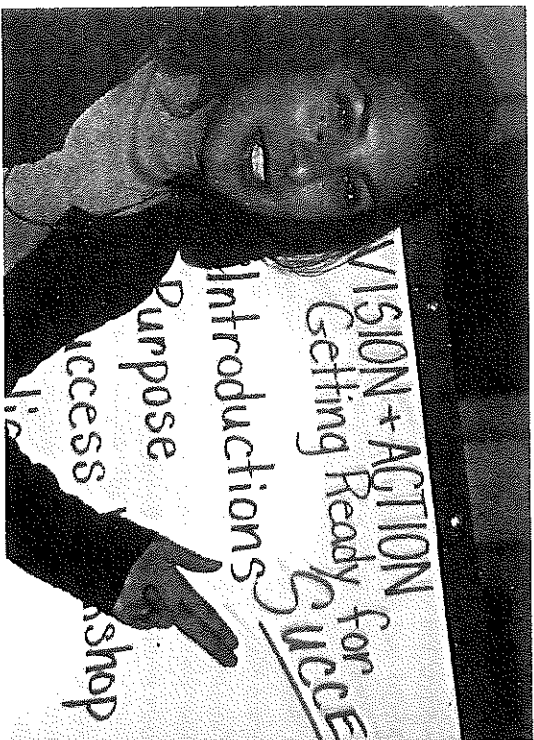 VISION + ACTION
Getting Ready for
SUCCE
Introductions
Purpose
uccess
shop